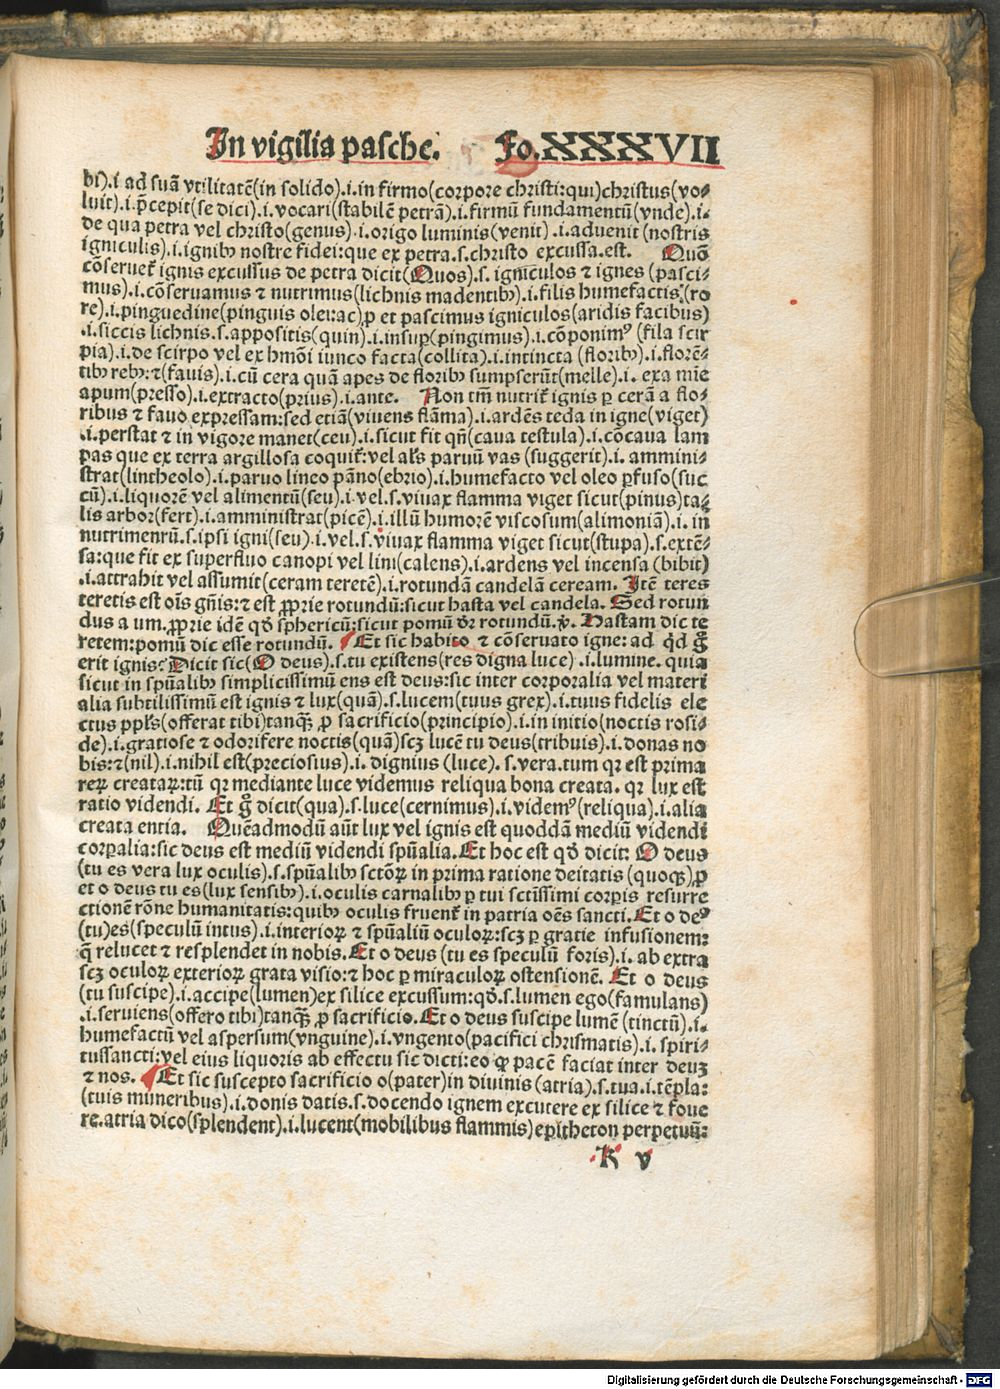 In vigilia pasche. Fo.XXXVII
bi).i ad suã vtilitatẽ(in solido).i.in firmo(corpore christi:qui)christus(vo⸗
luit).i.p̃cepit(se dici).i.vocari(stabilẽ petrã).i.firmũ fundamentũ(vnde).i.
de qua petra vel christo(genus).i.origo luminis(venit).i.aduenit(nostris
igniculis).i.ignibꝰ nostre fidei:que ex petra.s.christo excussa.est. Quõ
cõseruet᷑ ignis excussus de petra dicit(Quos).s. igniculos ⁊ ignes (pasci⸗
mus).i.cõseruamus ⁊ nutrimus(lichnis madentibꝰ).i.filis humefactis.(ro
re).i.pinguedine(pinguis olei:ac)ꝓ et pascimus igniculos(aridis facibus)
.i.siccis lichnis.s.appositis(quin).i.insuꝑ(pingimus).i.cõponimꝰ (fila scir
pia).i.de scirpo vel ex hm̃oi iunco facta(collita).i.intincta (floribꝰ).i.florẽ⸗
tibꝰ rebꝰ:⁊(fauis).i.cũ cera quã apes de floribꝰ sumpserũt(melle).i. exa mie
apum(presso).i.extracto(prius).i.ante. Non tm̃ nutrit᷑ ignis ꝑ cerã a flo⸗
ribus ⁊ fauo expressam:sed etiã(viuens flãma).i.ardẽs teda in igne(viget)
.i.perstat ⁊ in vigore manet(ceu).i.sicut fit qñ(caua testula).i.cõcaua lam
pas que ex terra argillosa coquit᷑:vel al̃s paruũ vas (suggerit).i. ammini⸗
strat(lintheolo).i.paruo lineo pãno(ebrio).i.humefacto vel oleo ꝑfuso(suc
cũ).i.liquorẽ vel alimentũ(seu).i.vel.s.viuax flamma viget sicut(pinus)ta⸗
lis arbor(fert).i.amministrat(picẽ).i.illũ humorẽ viscosum(alimoniã).i. in
nutrimentũ.s.ipsi igni(seu).i.vel.s.viuax flamma viget sicut(stupa).s.extẽ⸗
sa:que fit ex superfluo canopi vel lini(calens).i.ardens vel incensa (bibit)
.i.attrahit vel assumit(ceram teretẽ).i.rotundã candelã ceream. Itẽ teres
teretis est oĩs gñis:⁊ est ꝓprie rotundũ:sicut hasta vel candela. Sed rotun
dus a um.ꝓprie idẽ qđ sphericũ:sicut pomũ đr rotundũ.ꝟ. Hastam dic te
retem:pomũ dic esse rotundũ. Et sic habito ⁊ cõseruato igne: ad qđ g̃
erit ignis? Dicit sic(O deus).s.tu existens(res digna luce).i.lumine.quia
sicut in spũalibꝰ simplicissimũ ens est deus:sic inter corporalia vel materi
alia subtilissimũ est ignis ⁊ lux(quã).s.lucem(tuus grex).i.tuus fidelis ele
ctus ppl̃s(offerat tibi)tanqꝫ ꝓ sacrificio(principio).i.in initio(noctis rosi⸗
de).i.gratiose ⁊ odorifere noctis(quã)scꝫ lucẽ tu deus(tribuis).i.donas no
bis:⁊(nil).i.nihil est(preciosius).i. dignius (luce). s.vera.tum qꝛ est prima
reꝝ creataꝝ:tũ qꝛ mediante luce videmus reliqua bona creata. qꝛ lux est
ratio videndi. Et g̃ dicit(qua).s.luce(cernimus).i.videmꝰ(reliqua).i.alia
creata entia. Quẽadmodũ aũt lux vel ignis est quoddã mediũ videndi
corꝑalia:sic deus est mediũ videndi spũalia.Et hoc est qđ dicit: O deus
(tu es vera lux oculis).s.spũalibꝰ sctõꝝ in prima ratione deitatis (quoqꝫ)ꝓ
et o deus tu es(lux sensibꝰ).i.oculis carnalibꝰ ꝑ tui sctĩssimi corꝑis resurre
ctionẽ rõne humanitatis:quibꝰ oculis fruent᷑ in patria oẽs sancti.Et o deꝰ
(tu)es(speculũ intus).i.interioꝝ ⁊ spũaliũ oculoꝝ:scꝫ ꝑ gratie infusionem:
q̃ relucet ⁊ resplendet in nobis.Et o deus (tu es speculũ foris).i. ab extra
scꝫ oculoꝝ exterioꝝ grata visio:⁊ hoc ꝑ miraculoꝝ ostensionẽ. Et o deus
(tu suscipe).i.accipe(lumen)ex silice excussum:qđ.s.lumen ego(famulans)
.i.seruiens(offero tibi)tanqꝫ ꝓ sacrificio.Et o deus suscipe lumẽ (tinctũ).i.
humefactũ vel aspersum(vnguine).i.vngento(pacifici chrismatis).i. spiri⸗
tussancti:vel eius liquoris ab effectu sic dicti:eo ꝙ pacẽ faciat inter deuꝫ
⁊ nos. Et sic suscepto sacrificio o(pater)in diuinis (atria).s.tua.i.tẽpla:
(tuis muneribus).i.donis datis.s.docendo ignem excutere ex silice ⁊ foue
re.atria dico(splendent).i.lucent(mobilibus flammis)epitheton perpetuũ:
K v
Digitalisierung gefördert durch die Deutsche Forschungsgemeinschaft - DFG